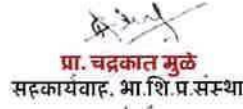 प्रा. चद्रकात मुळे
सहकार्यवाह, भा.शि.प्र.संस्था